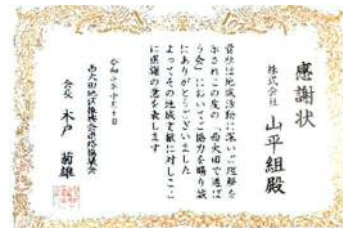 感謝状
株式会社 山平組殿
貴社は地域活動に深いご理解を
示されこの度の「西大田で遊ぼ
う会」においてご協力を賜り誠
にありがとうございました
よってその地域貢献に対しここ
に感謝の意を表します
令和 年十月 十日
西大田地区推進会連絡協議会
会長 木戸 菊雄